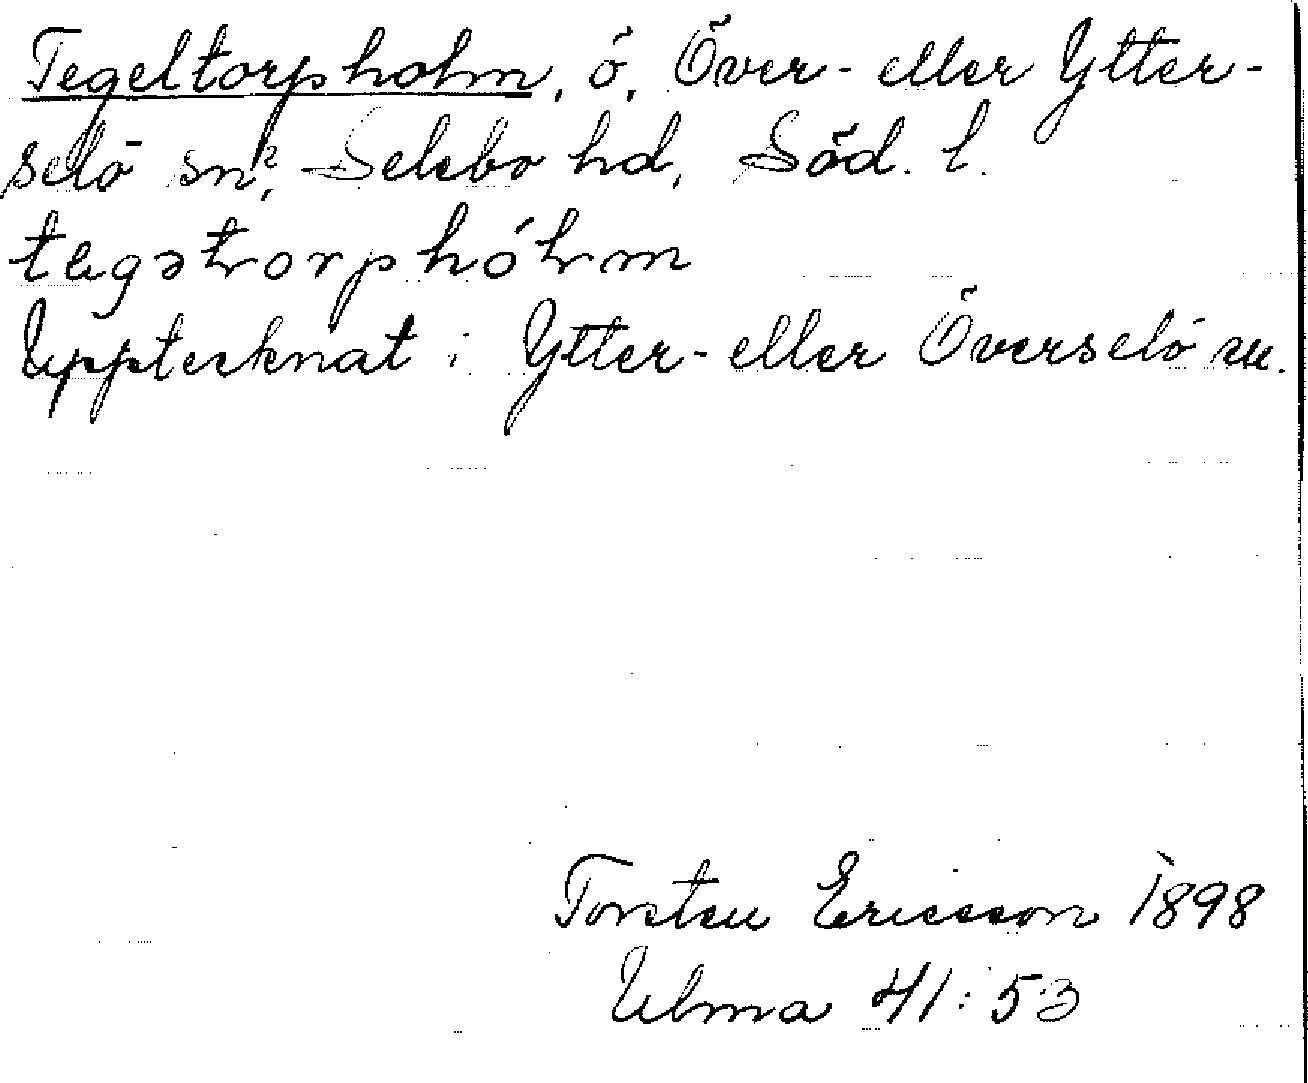 Tegeltorpholm, ö, Över- eller Ytter-
selö sn?, Selebo hd, Söd. l.
Upptecknat i Ytter- eller Överselö sn.
Torsten Ericsson 1898
Ulma 41:53